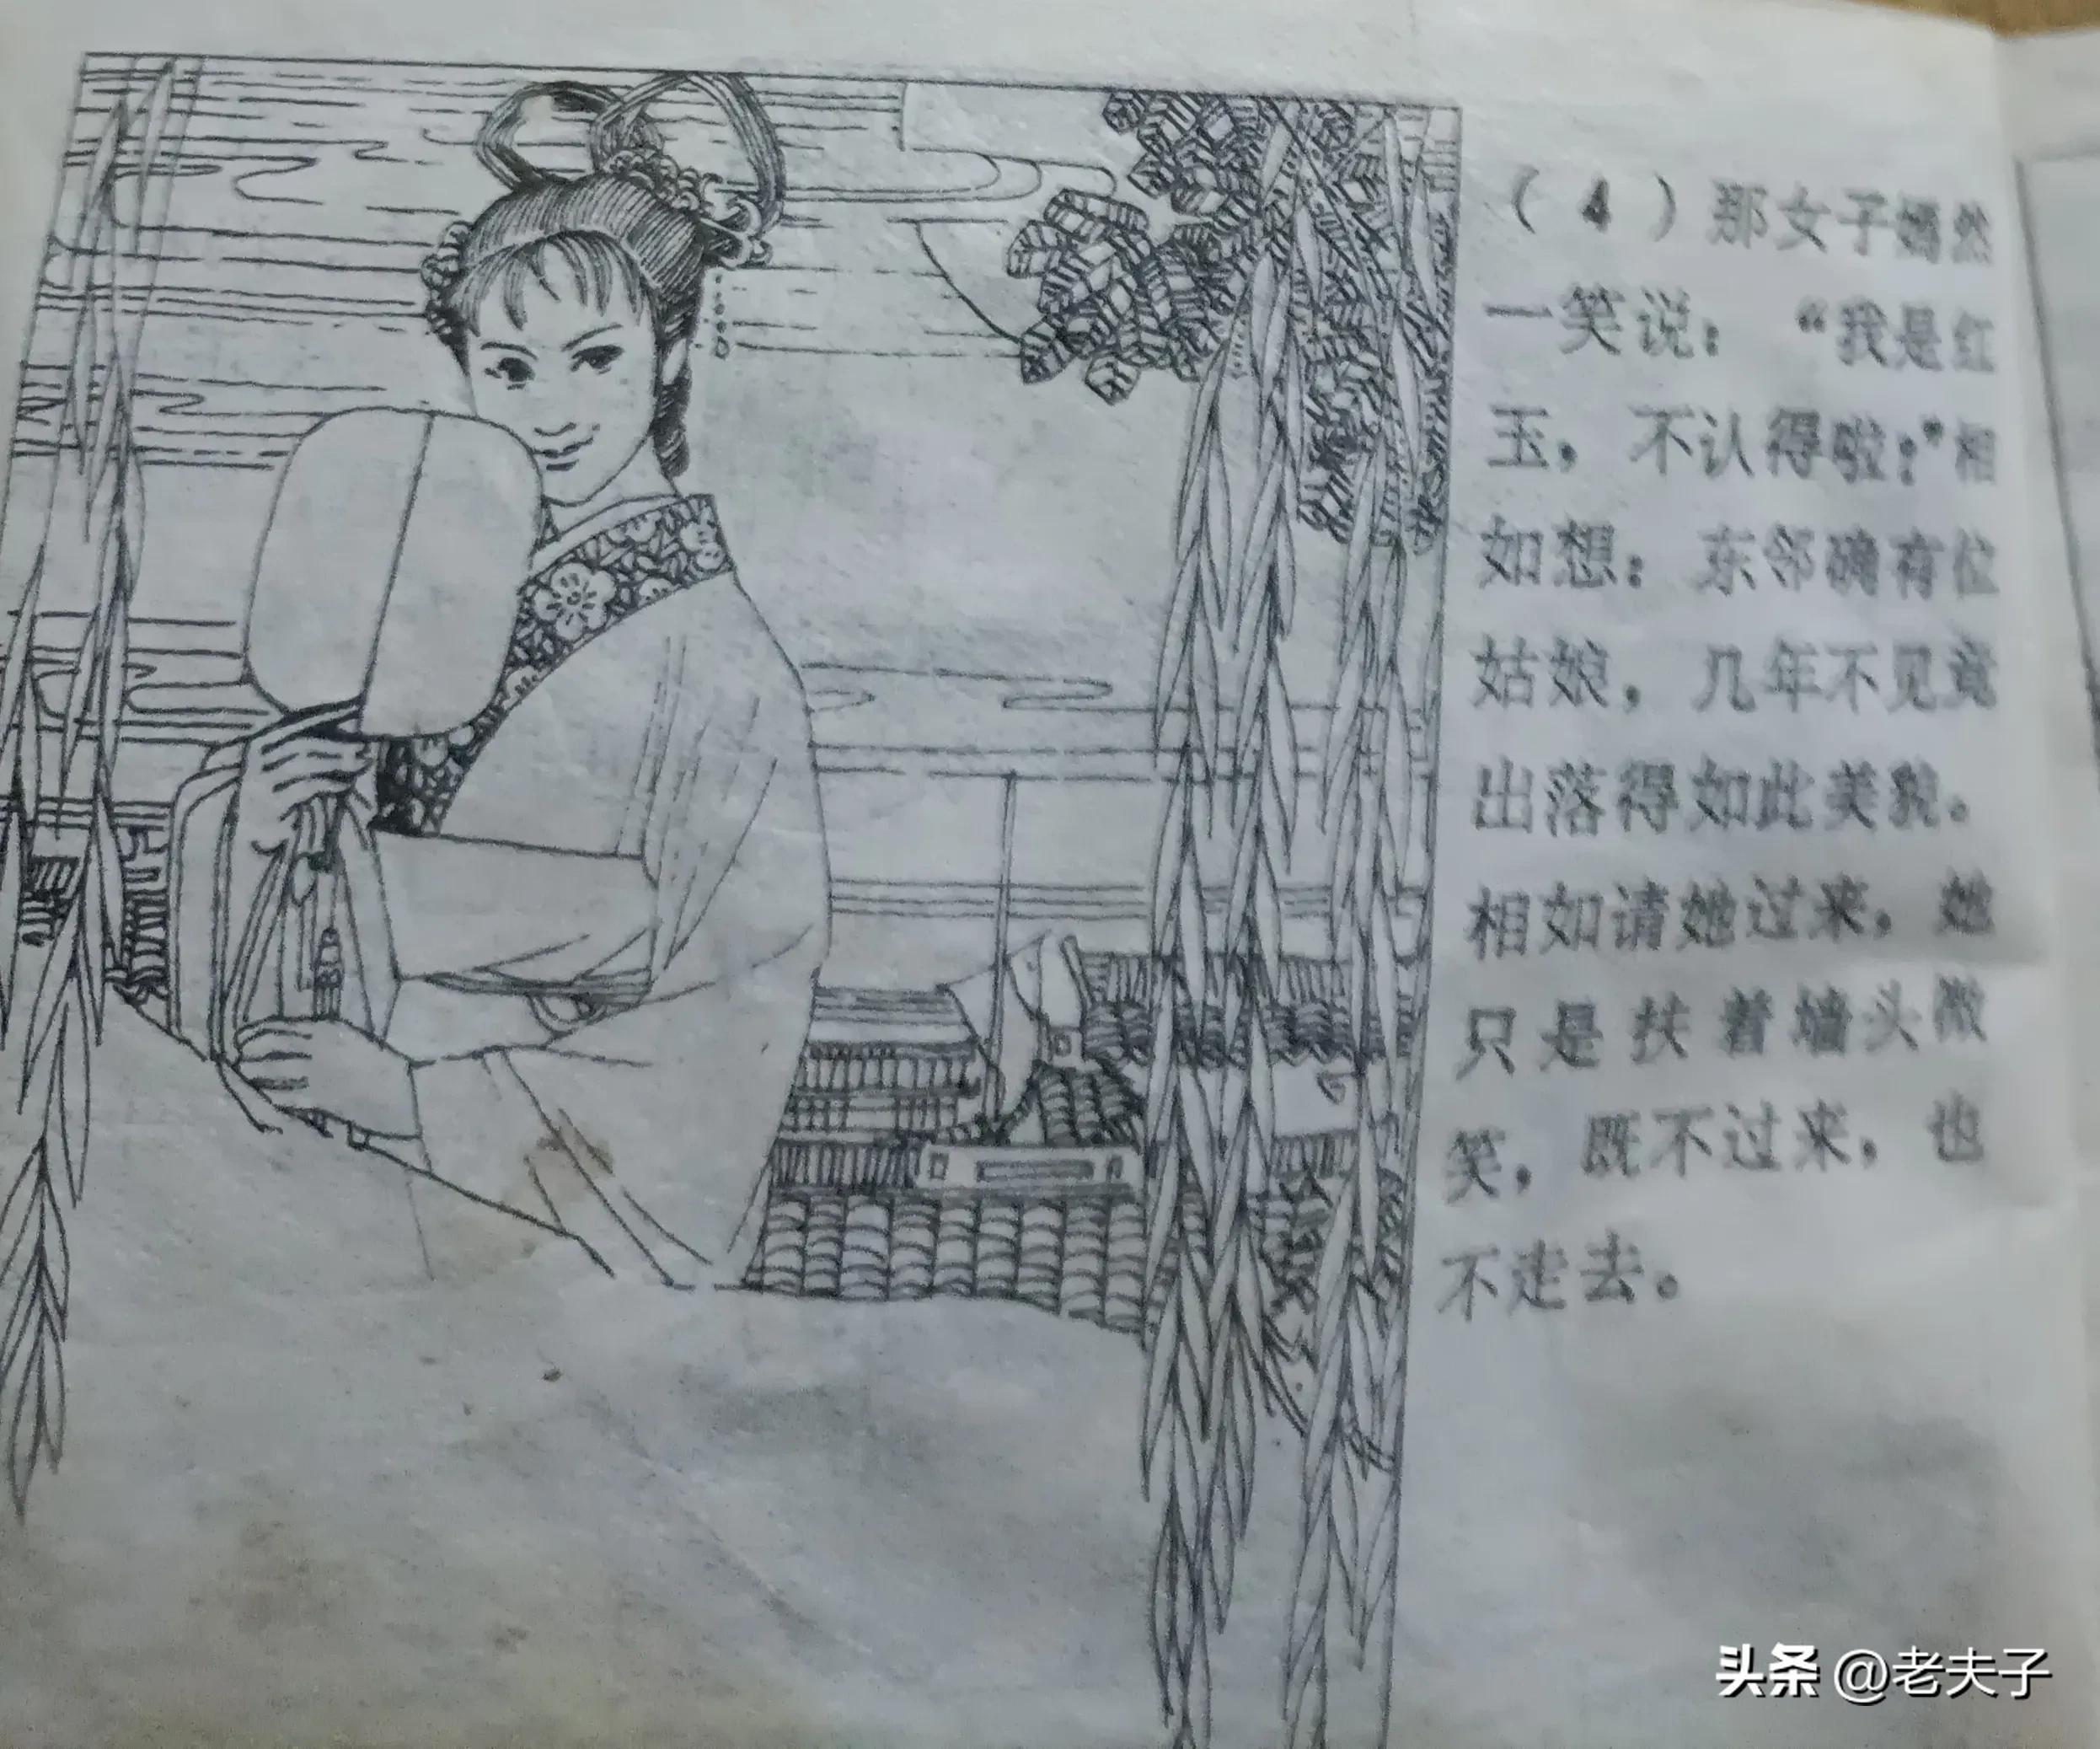 （4）那女子嫣然
一笑说：“我是红
玉，不认得啦；”相
如想：东邻确有位
姑娘，几年不见竟
出落得如此美貌。
相如请她过来，她
只是扶着墙头微
笑，既不过来，也
不走去。
头条 @老夫子